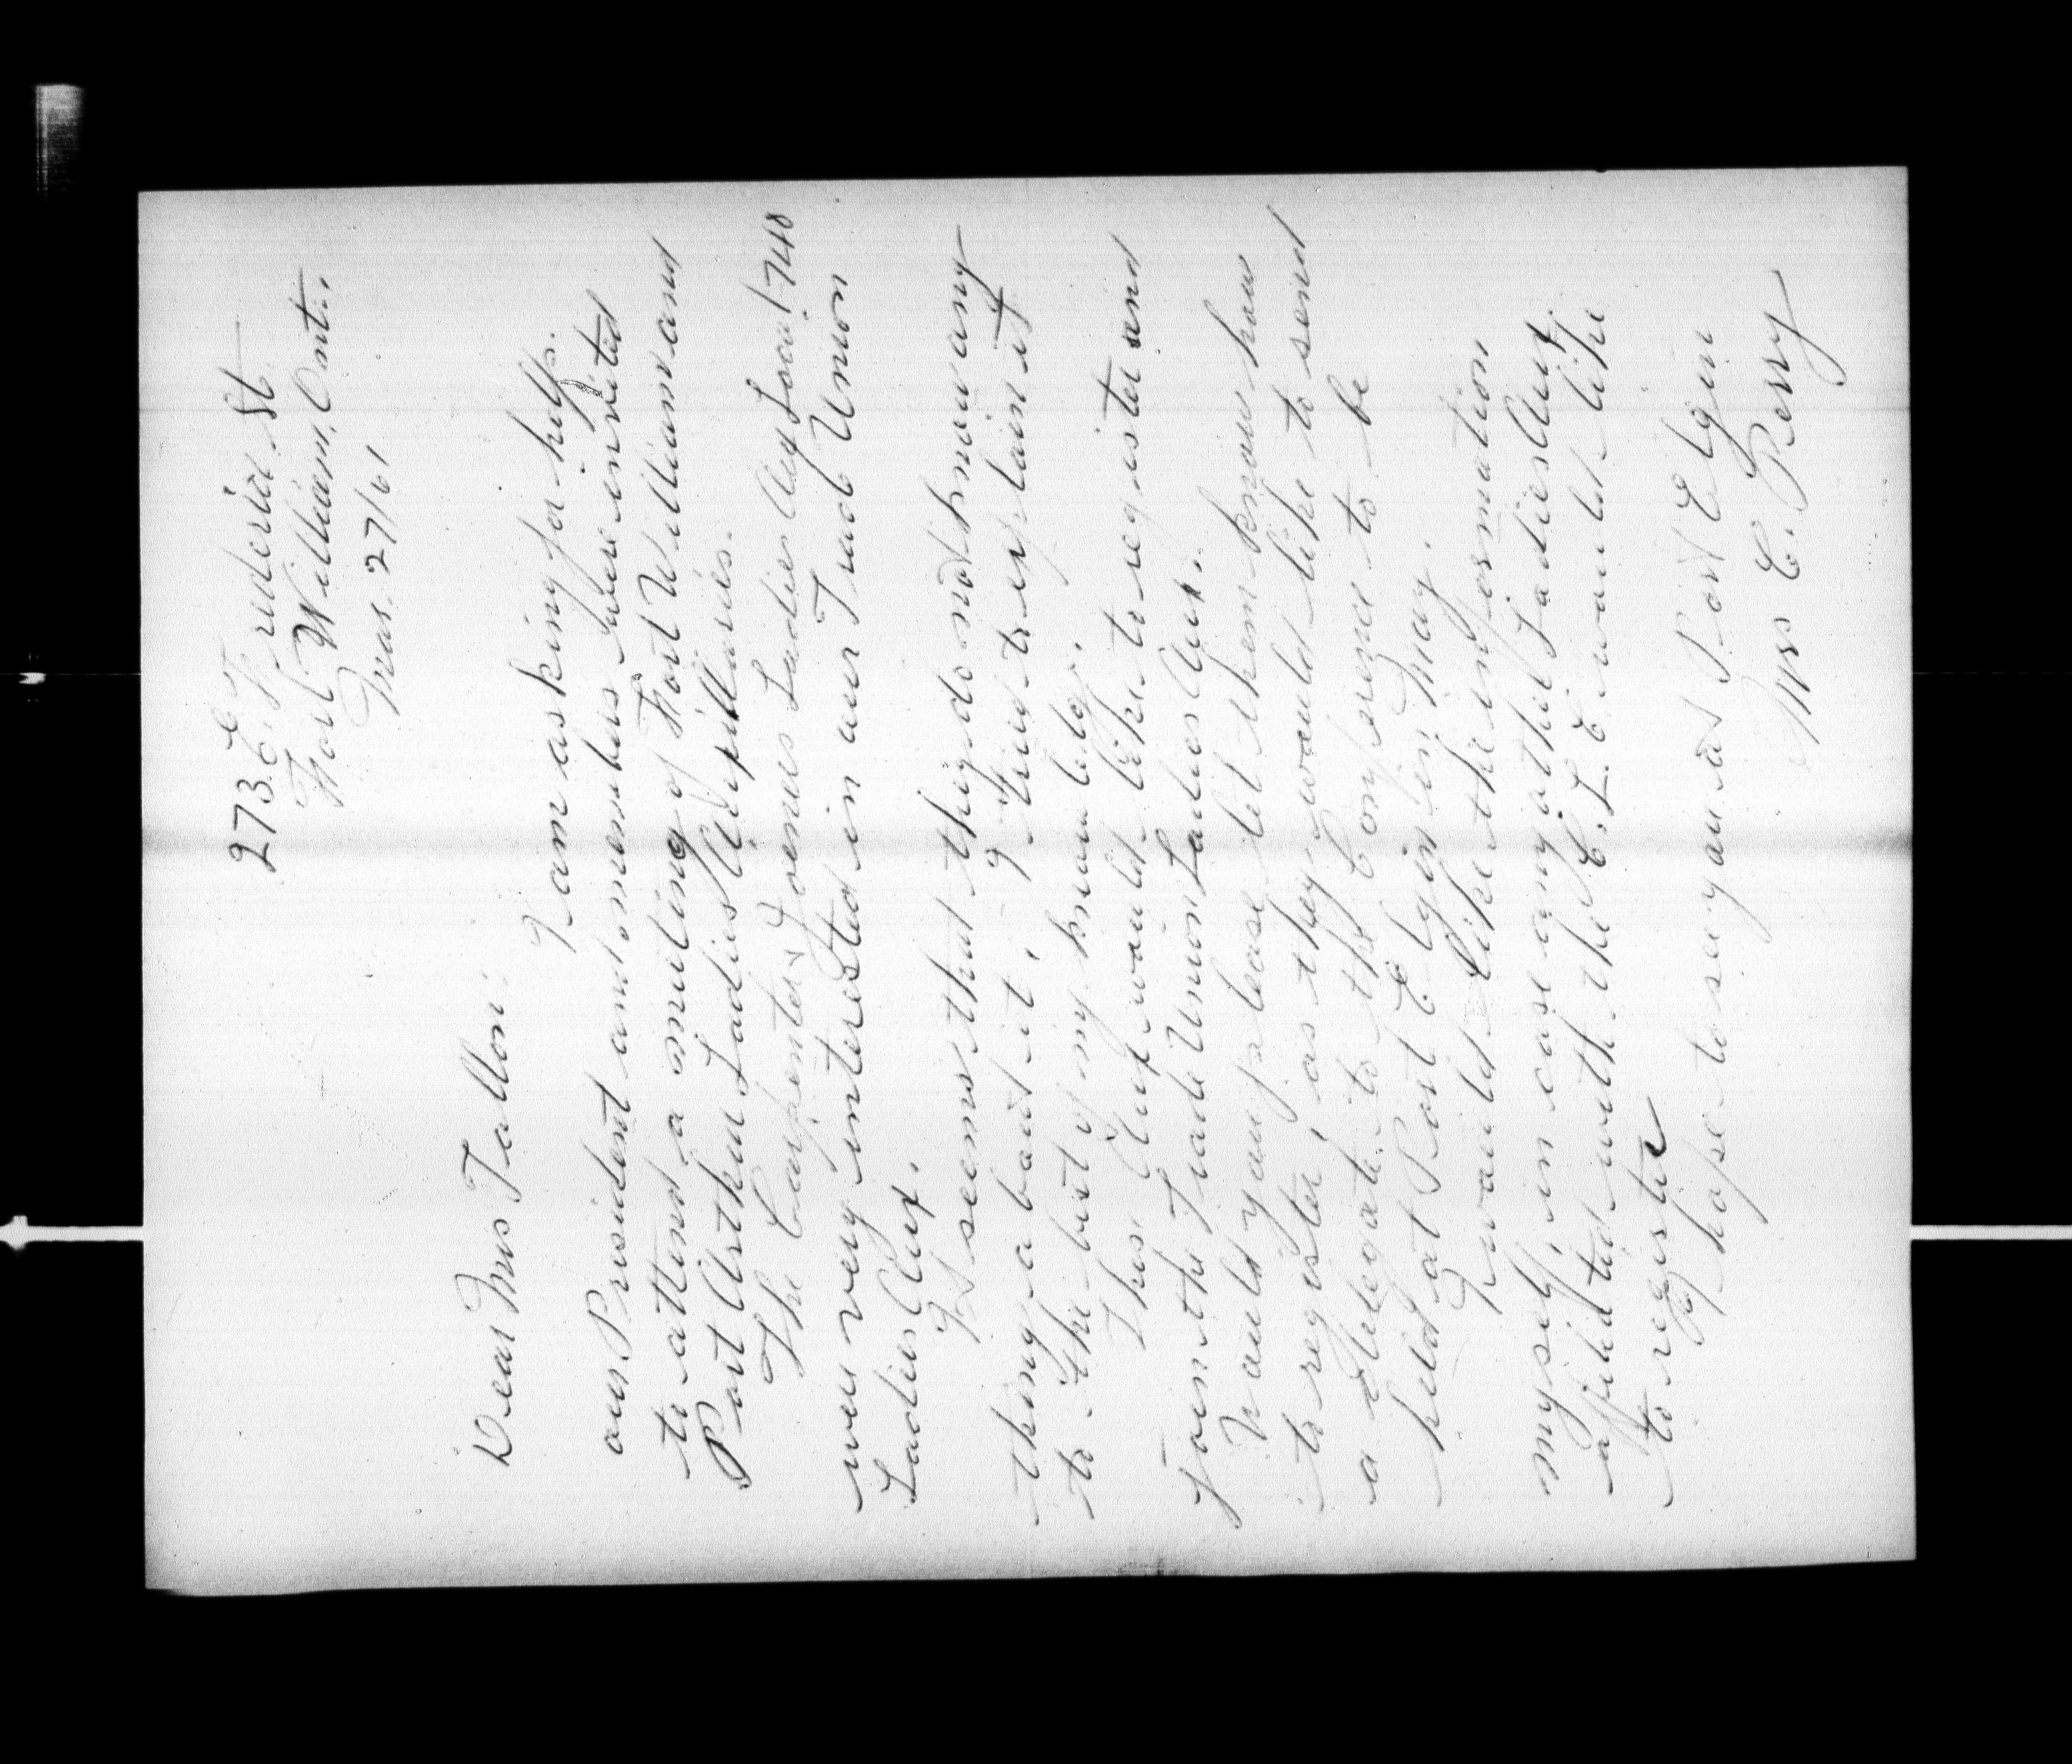 273 E. Frederica St.
Fort William, Ont.
Mar. 27/61
Dear Mrs Tallon:
I am asking for help.
our President and members were invited
to attend a meeting of Fort William and
Port Arthur Ladies Auxillaries.
The Carpenter & Joiners Ladies Aux Local 1748
were very interested in our Trade Union
Ladies Aux.
It seems that they do not know any
thing about it. I tried to explain it
to the best of my knowledge.
Their Aux would like to register and
join the Trade Union Ladies Aux.
Would you please let them know how
to register as they would like to send
a delegate to the Conference to be
held at Port Elgin in May.
I would like the information
myself, in case any other Ladies Aux.
affilited with the C.L.C. would like
to register
I hope to see you at Port Elgin
Mrs C. Perry